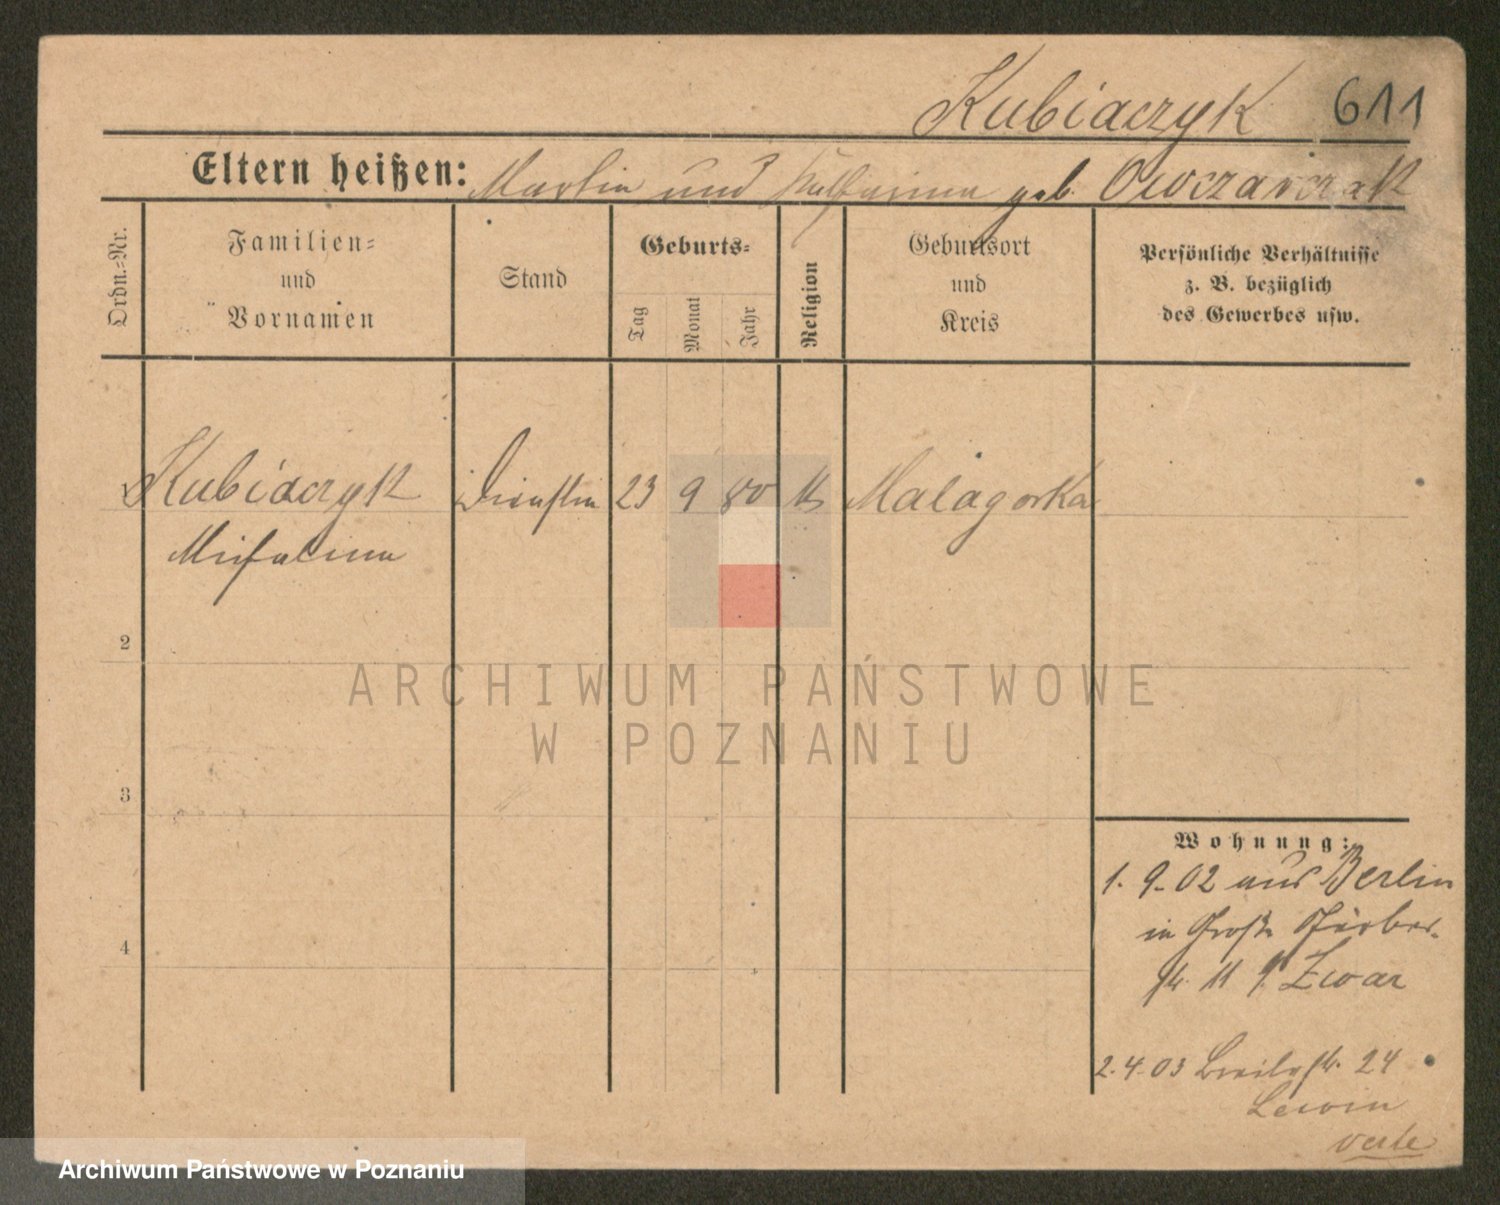 Kubiaczyk 611
Eltern heißen: Martin und Katharina geb. Owczarczak
Ordn.=Nr.
Familien=
und
Vornamen
Stand
Geburts=
Tag
Monat
Jahr
Religion
Geburtsort
und
Kreis
Persönliche Verhältnisse
z. B. bezüglich
des Gewerbes usw.
Kubiaczyk Dienstm 23 9 80 K Malagorka
2
3
4
ARCHIWUM PAŃSTWOWE
W POZNANIU
Wohnung:
1. 9. 02 aus Berlin
in Große Färber-
str. 11 Zwar
2. 4. 03 Breitestr. 24
Lewin
verte
Archiwum Państwowe w Poznaniu